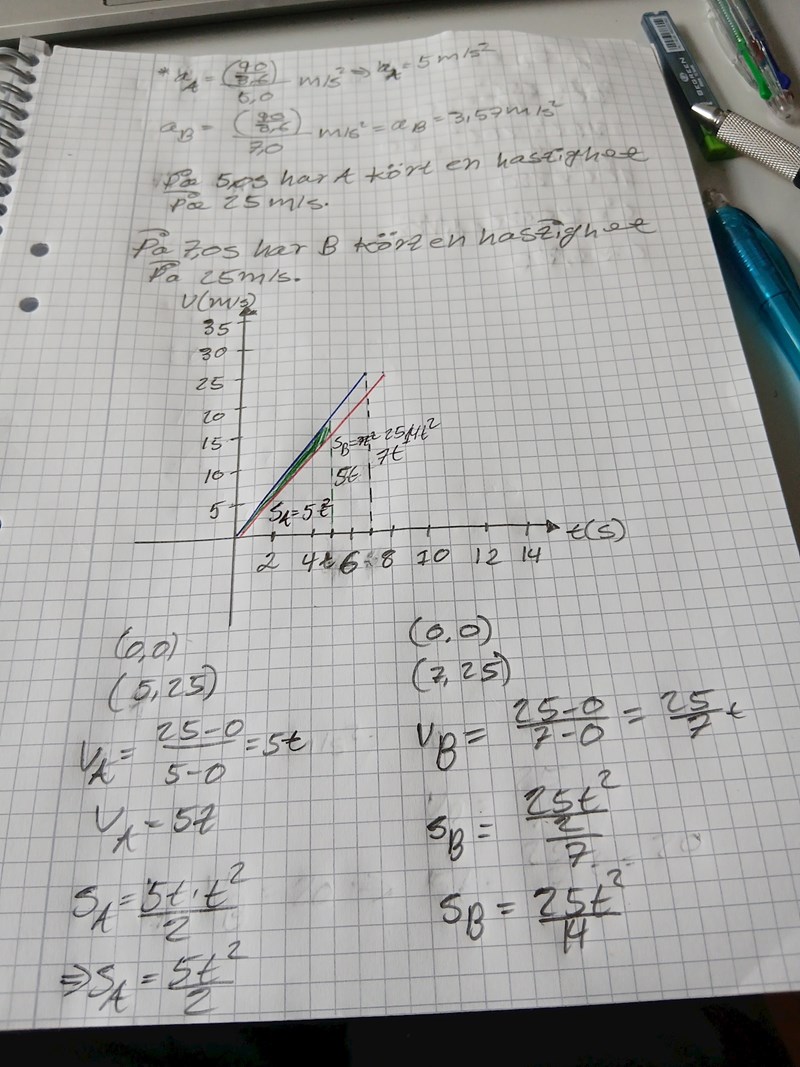 * a_A = (90/3,6)/5,0 m/s² ⇒ a_A = 5 m/s²
a_B = (90/3,6)/7,0 m/s² = a_B = 3,57 m/s²
På 5,0s har A kört en hastighet
på 25 m/s.
På 7,0s har B kört en hastighet
På 25 m/s.
V(m/s)
35
30
25
20
15
10
5
S_A = 5t²
S_B =
25/14 t²
5t
7t
2 4 t 6 8 10 12 14 t(s)
(0,0)
(5,25)
V_A = (25-0)/(5-0) = 5t
V_A = 5t
S_A = (5t·t²)/2
⇒ S_A = 5t²/2
(0,0)
(7,25)
V_B = (25-0)/(7-0) = 25/7 t
S_B = (25t²/2)/7
S_B = 25t²/14